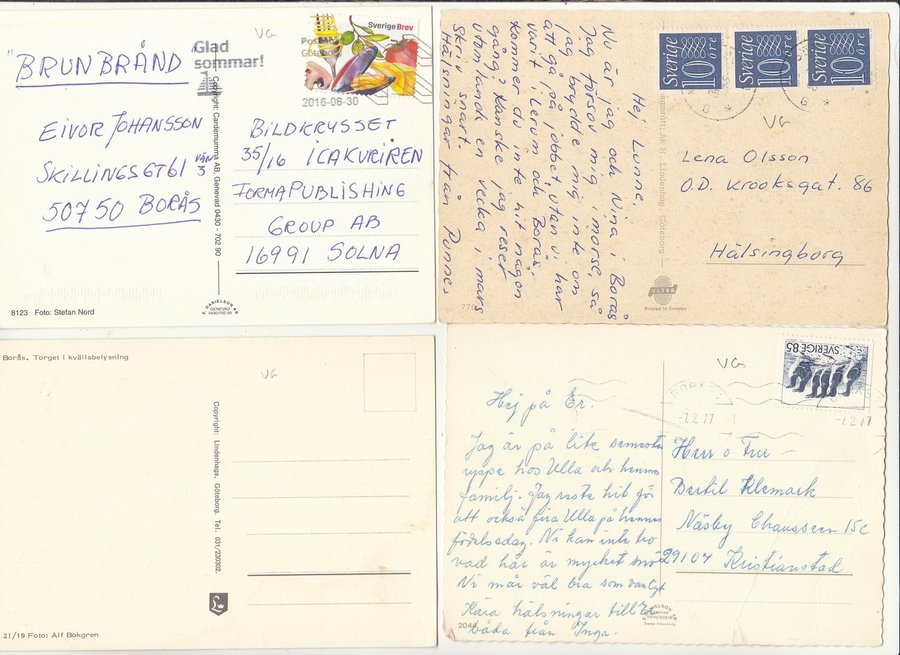 VG
Sverige Brev
Glad
sommar!
2016-08-30
"BRUNBRÅND"
EIVOR JOHANSSON
SKILLINGSGT61 VÅN 3
50750 BORÅS
BILDKRYSSET
35/16 ICAKURIREN
FORMA PUBLISHING
GROUP AB
16991 SOLNA
Copyright: Cardemumma AB, Genevad 0430 - 702 90
DANIELSON
GENEVAD
0430/702 90
8123 Foto: Stefan Nord
Hej Lunne.
Nu är jag och Nina i Borås
Jag försov mig i morse, så
jag brydde mig inte om
att gå på jobbet, utan vi har
varit i Lerum och Borås.
Kommer du inte hit någon
gång? Kanske jag reser
utomlands en vecka i mars
Skriv snart.
Hälsningar från Punne
Sverige 10 öre
Sverige 10 öre
Sverige 10 öre
VG
Lena Olsson
O.D. Krooksgat. 86
Hälsingborg
AB H. Lindenhag - Göteborg
ULTRA
Printed in Sweden
Borås. Torget i kvällsbelysning
VG
Copyright: Lindenhags, Göteborg. Tel. 031/230302.
21/19 Foto: Alf Bokgren
VG
SVERIGE 85
-7.2.77
-7.2.77
Hej på Er.
Jag är på lite semester
hos Ulla och hennes
familj. Jag reste hit för
att också fira Ulla på hennes
födelsedag. Ni kan inte tro
vad här är mycket snö
Ni mår väl bra som vanligt
Kära hälsningar till Er
båda från Inga.
Herr o Fru
Bertil Klemark
Näsby Chaussen 15c
29104 Kristianstad